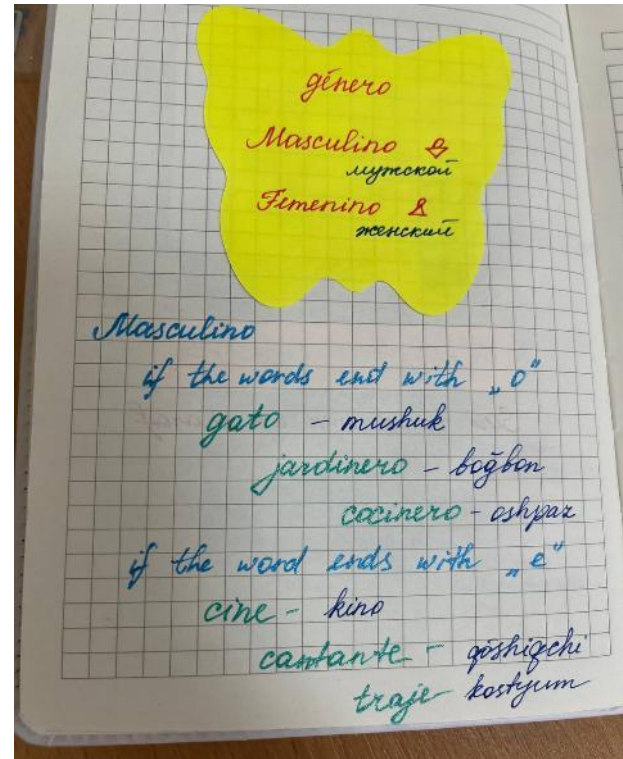 género
Masculino
мужской
Femenino
женский
Masculino
if the words end with „o“
gato – mushuk
jardinero – boğbon
cocinero – oshpaz
if the word ends with „e“
cine – kino
cantante – qöshiqchi
traje – kostyum